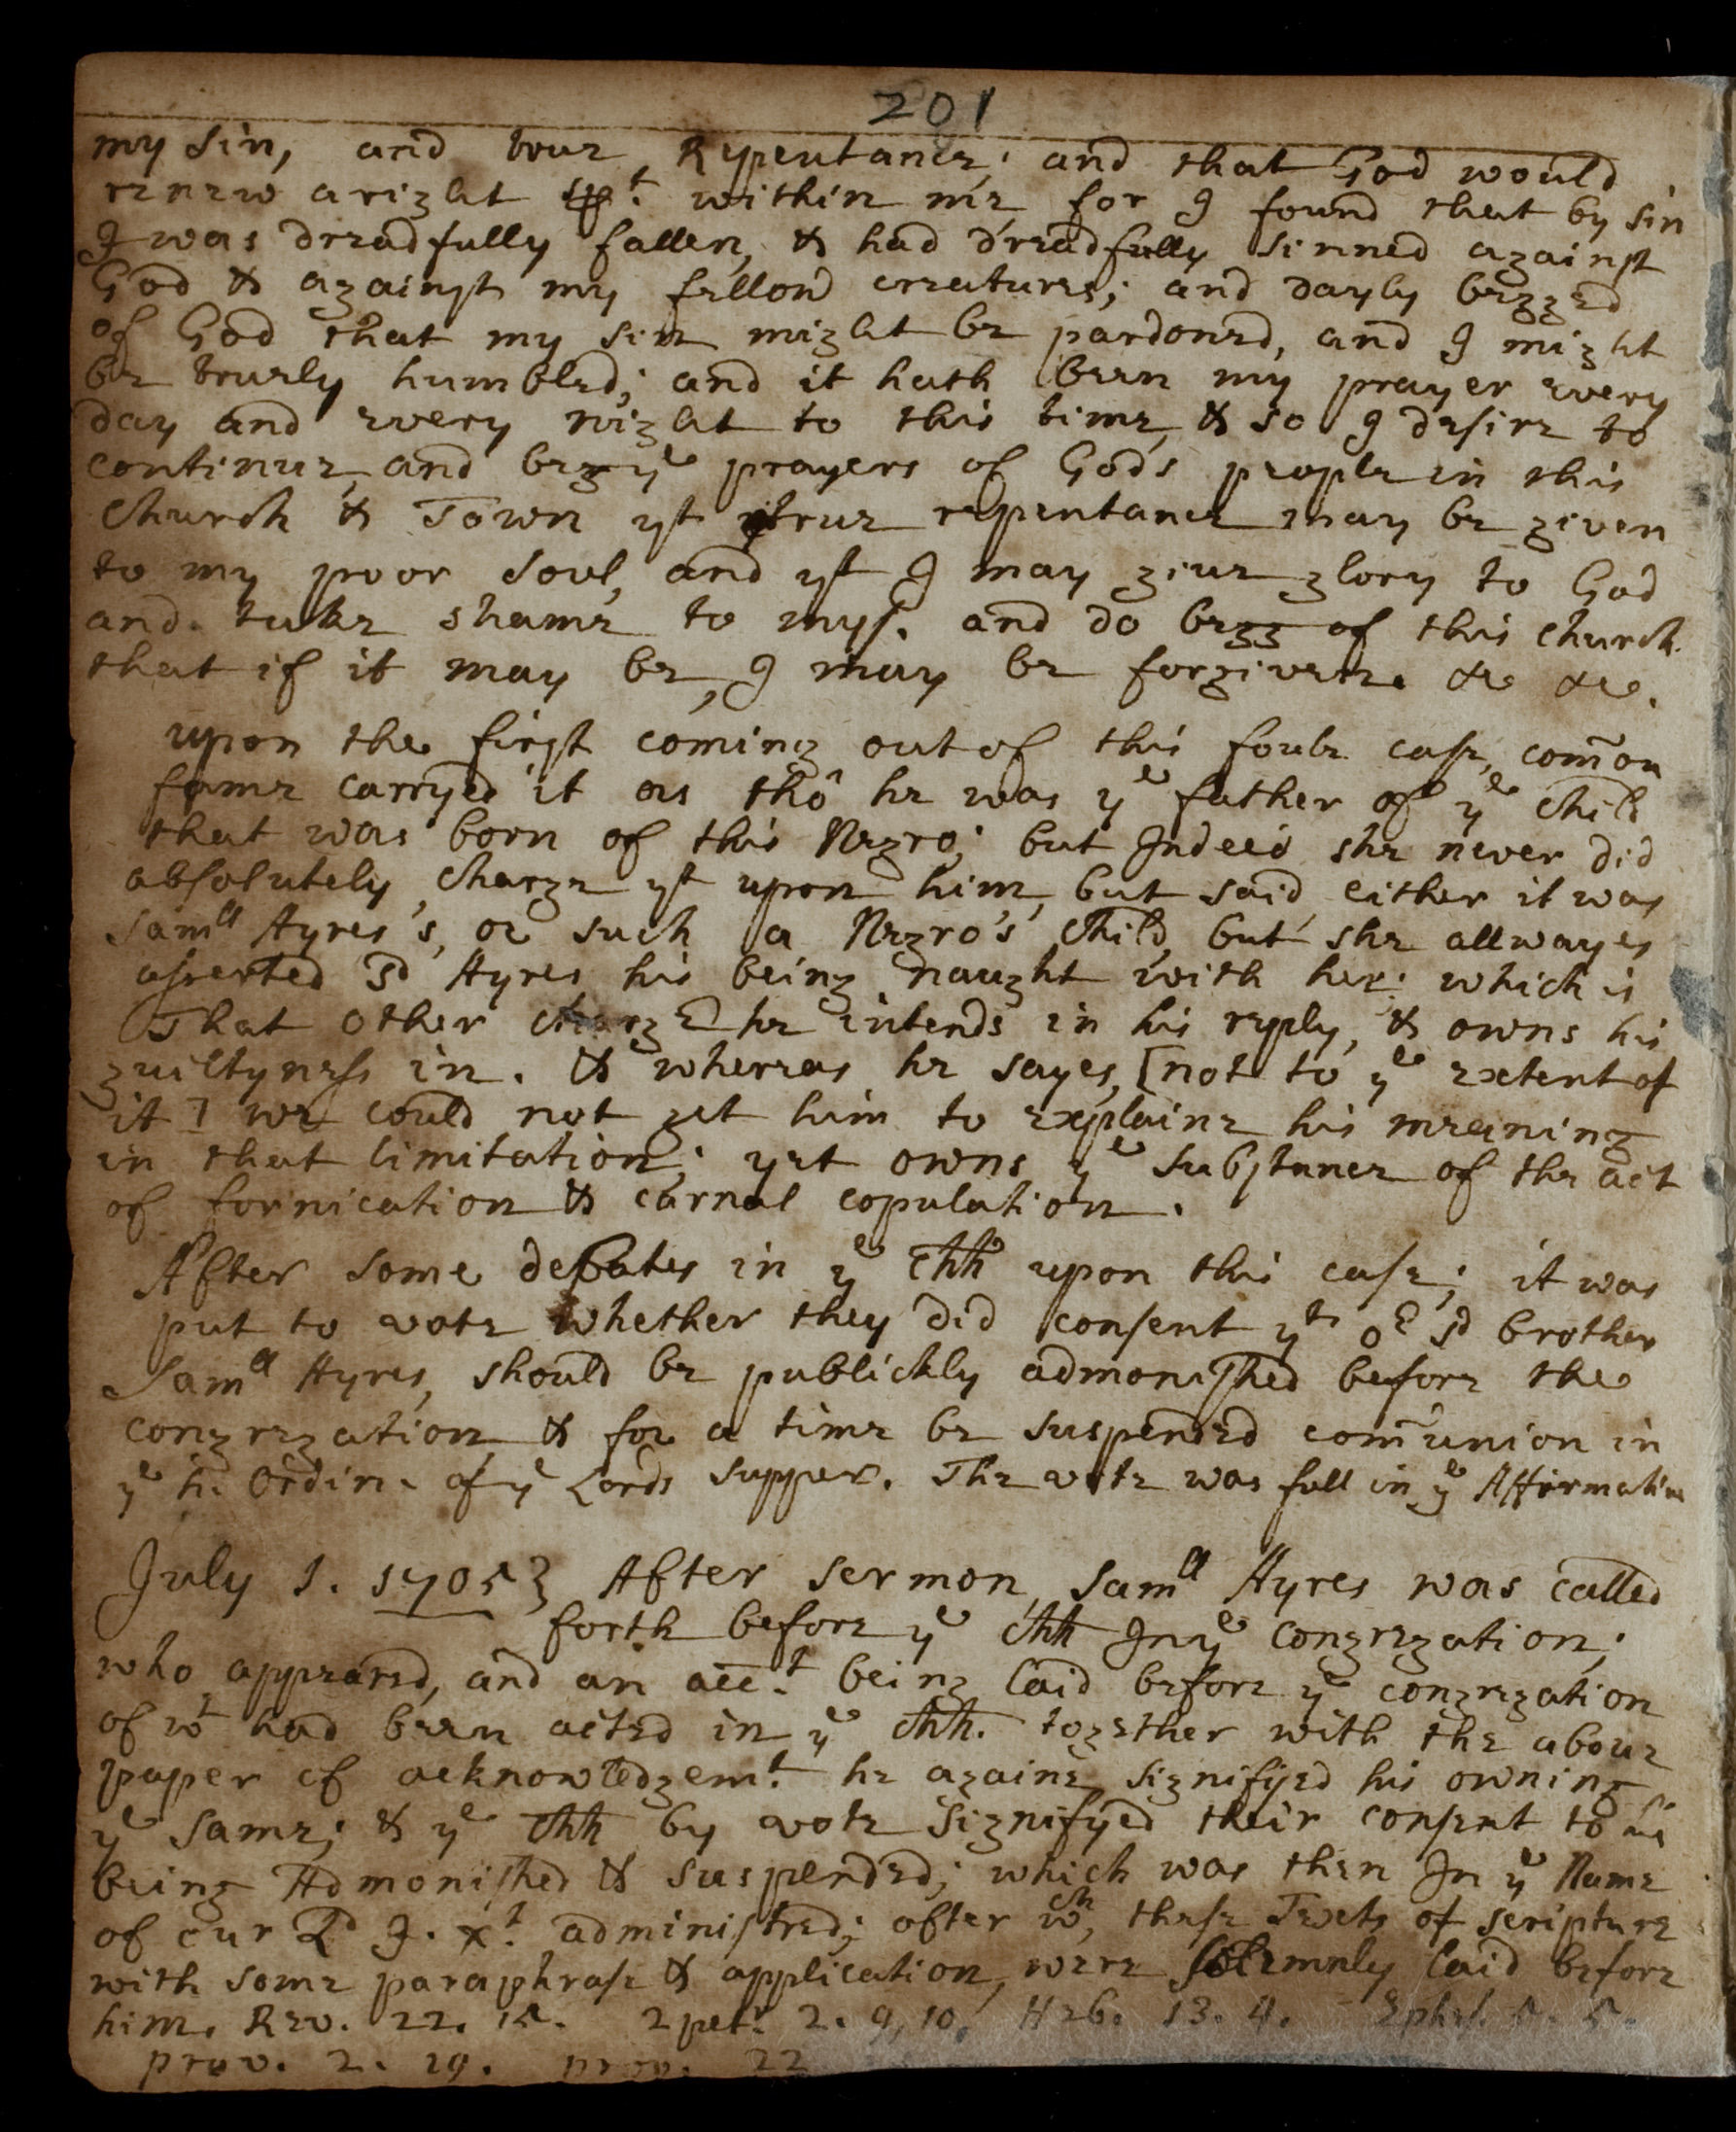 201
my sin, and true Repentance; and that God would
renew a right spt. within me, for I found that by sin
I was dreadfully fallen, & had dreadfully sinned against
God & against my fellow creatures; and dayly begged
of God that my sin might be pardoned, and I might
be truely humbled; and it hath been my prayer every
day and every night to this time, & so I desire to
continue, and beg ye prayers of Gods people in this
Church & Town yt true repentance may be given
to my poor Soul, and yt I may give glory to God
and take shame to mys. and do begg of this church
that if it may be, I may be forgiven. &c &c.
upon the first coming out of this foule case, com̃on
fame carryed it as thô he was ye father of ye child
that was born of this Negro; but Indeed she never did
absolutely charge yt upon him, but said either it was
Samll Ayres's, or such a Negro's child, but she allwayes
asserted sd Ayres his being naught with her: which is
That other charge he intends in his reply, & owns his
guiltyness in. & whereas he sayes, [not to ye extent of
it] we could not get him to explaine his meaning
in that limitation; yet owns ye substance of the act
of fornication & carnal copulation.
After some debates in ye Chh upon this case; it was
put to vote whether they did consent yt oe sd brother
Samll Ayres, should be publickly admonished before the
congregation & for a time be suspended com̃union in
ye h. Ordin. of ye Lords supper. The vote was full in ye Affirmative
July 1. 1705} After sermon, Samll Ayres was called
forth before ye chh In ye congregation;
who appeared, and an acct. being laid before ye congregation
of wt had been acted in ye chh. together with the above
paper of acknowledgemt. he againe signifyed his owning
ye same; & ye Chh by vote signifyed their consent to his
being Admonished & suspended; which was then In ye Name
of our Ld J. Xt. administred; after wch, these Texts of scripture
with some paraphrase & application, were solemnly laid before
him. Rev. 22. 15. 2 pet. 2. 9, 10. Heb. 13. 4. Ephes. 5. 5.
prov. 2. 19. prov. 22